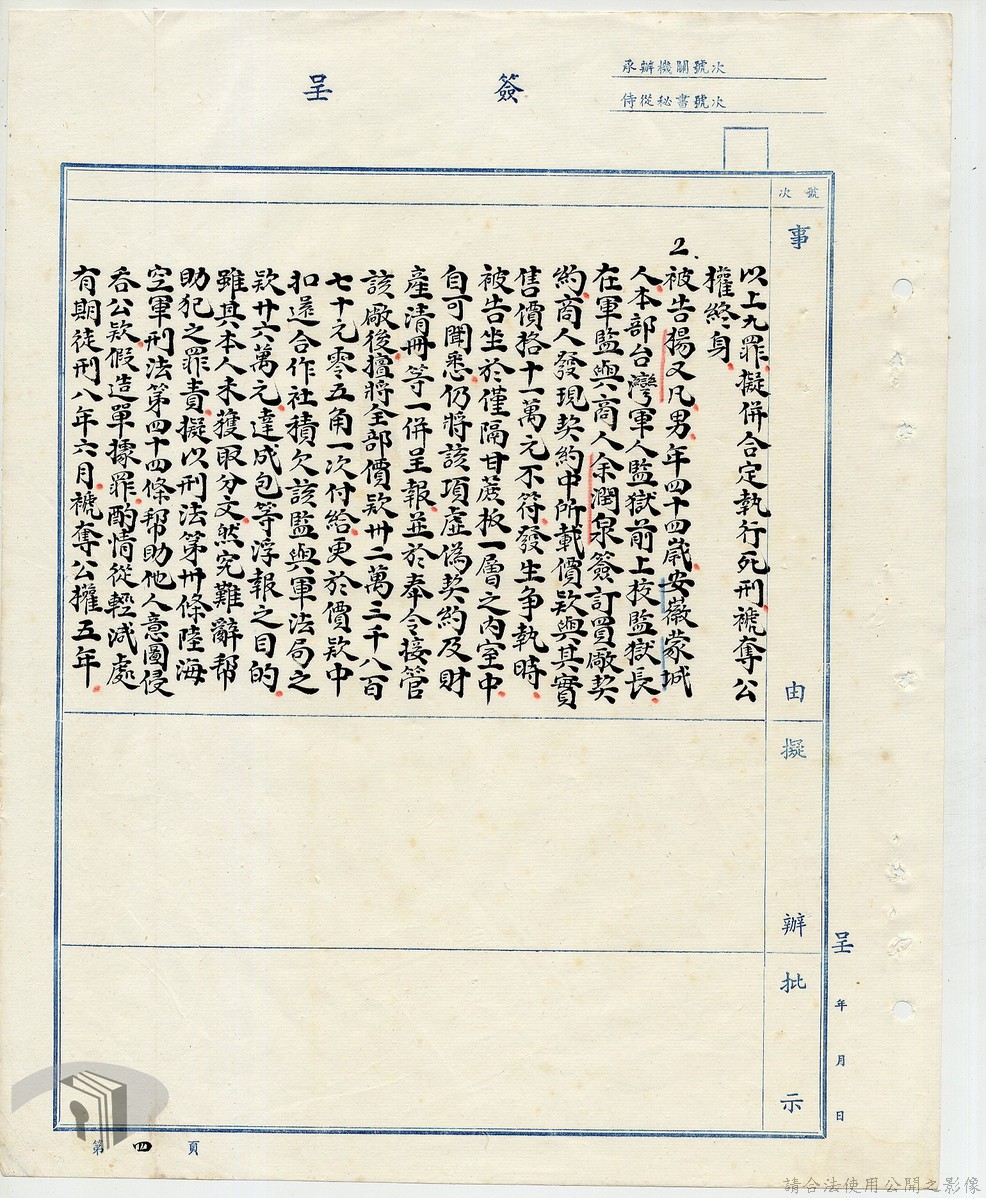 簽呈
承辦機關號次
侍從秘書號次
號次
事由
以上九罪擬併合定執行死刑褫奪公
權終身
2.
被告楊又凡男年四十四歲安徽蒙城
人本部台灣軍人監獄前上校監獄長
在軍監與商人余潤泉簽訂買廠契
約商人發現契約中所載價欵與其實
售價格十一萬元不符發生爭執時
被告坐於僅隔甘蔗板一層之內室中
自可聞悉仍將該項虛偽契約及財
產清冊等一併呈報並於奉令接管
該廠後擅將全部價欵卅二萬三千八百
七十元零五角一次付給更於價欵中
扣還合作社積欠該監與軍法局之
欵廿六萬元達成包等浮報之目的
雖其本人未獲取分文然究難辭幫
助犯之罪責擬以刑法第卅條陸海
空軍刑法第四十四條幫助他人意圖侵
吞公欵假造單據罪酌情從輕減處
有期徒刑八年六月褫奪公權五年
擬辦
批示
呈 年 月 日
第四頁
請合法使用公開之影像